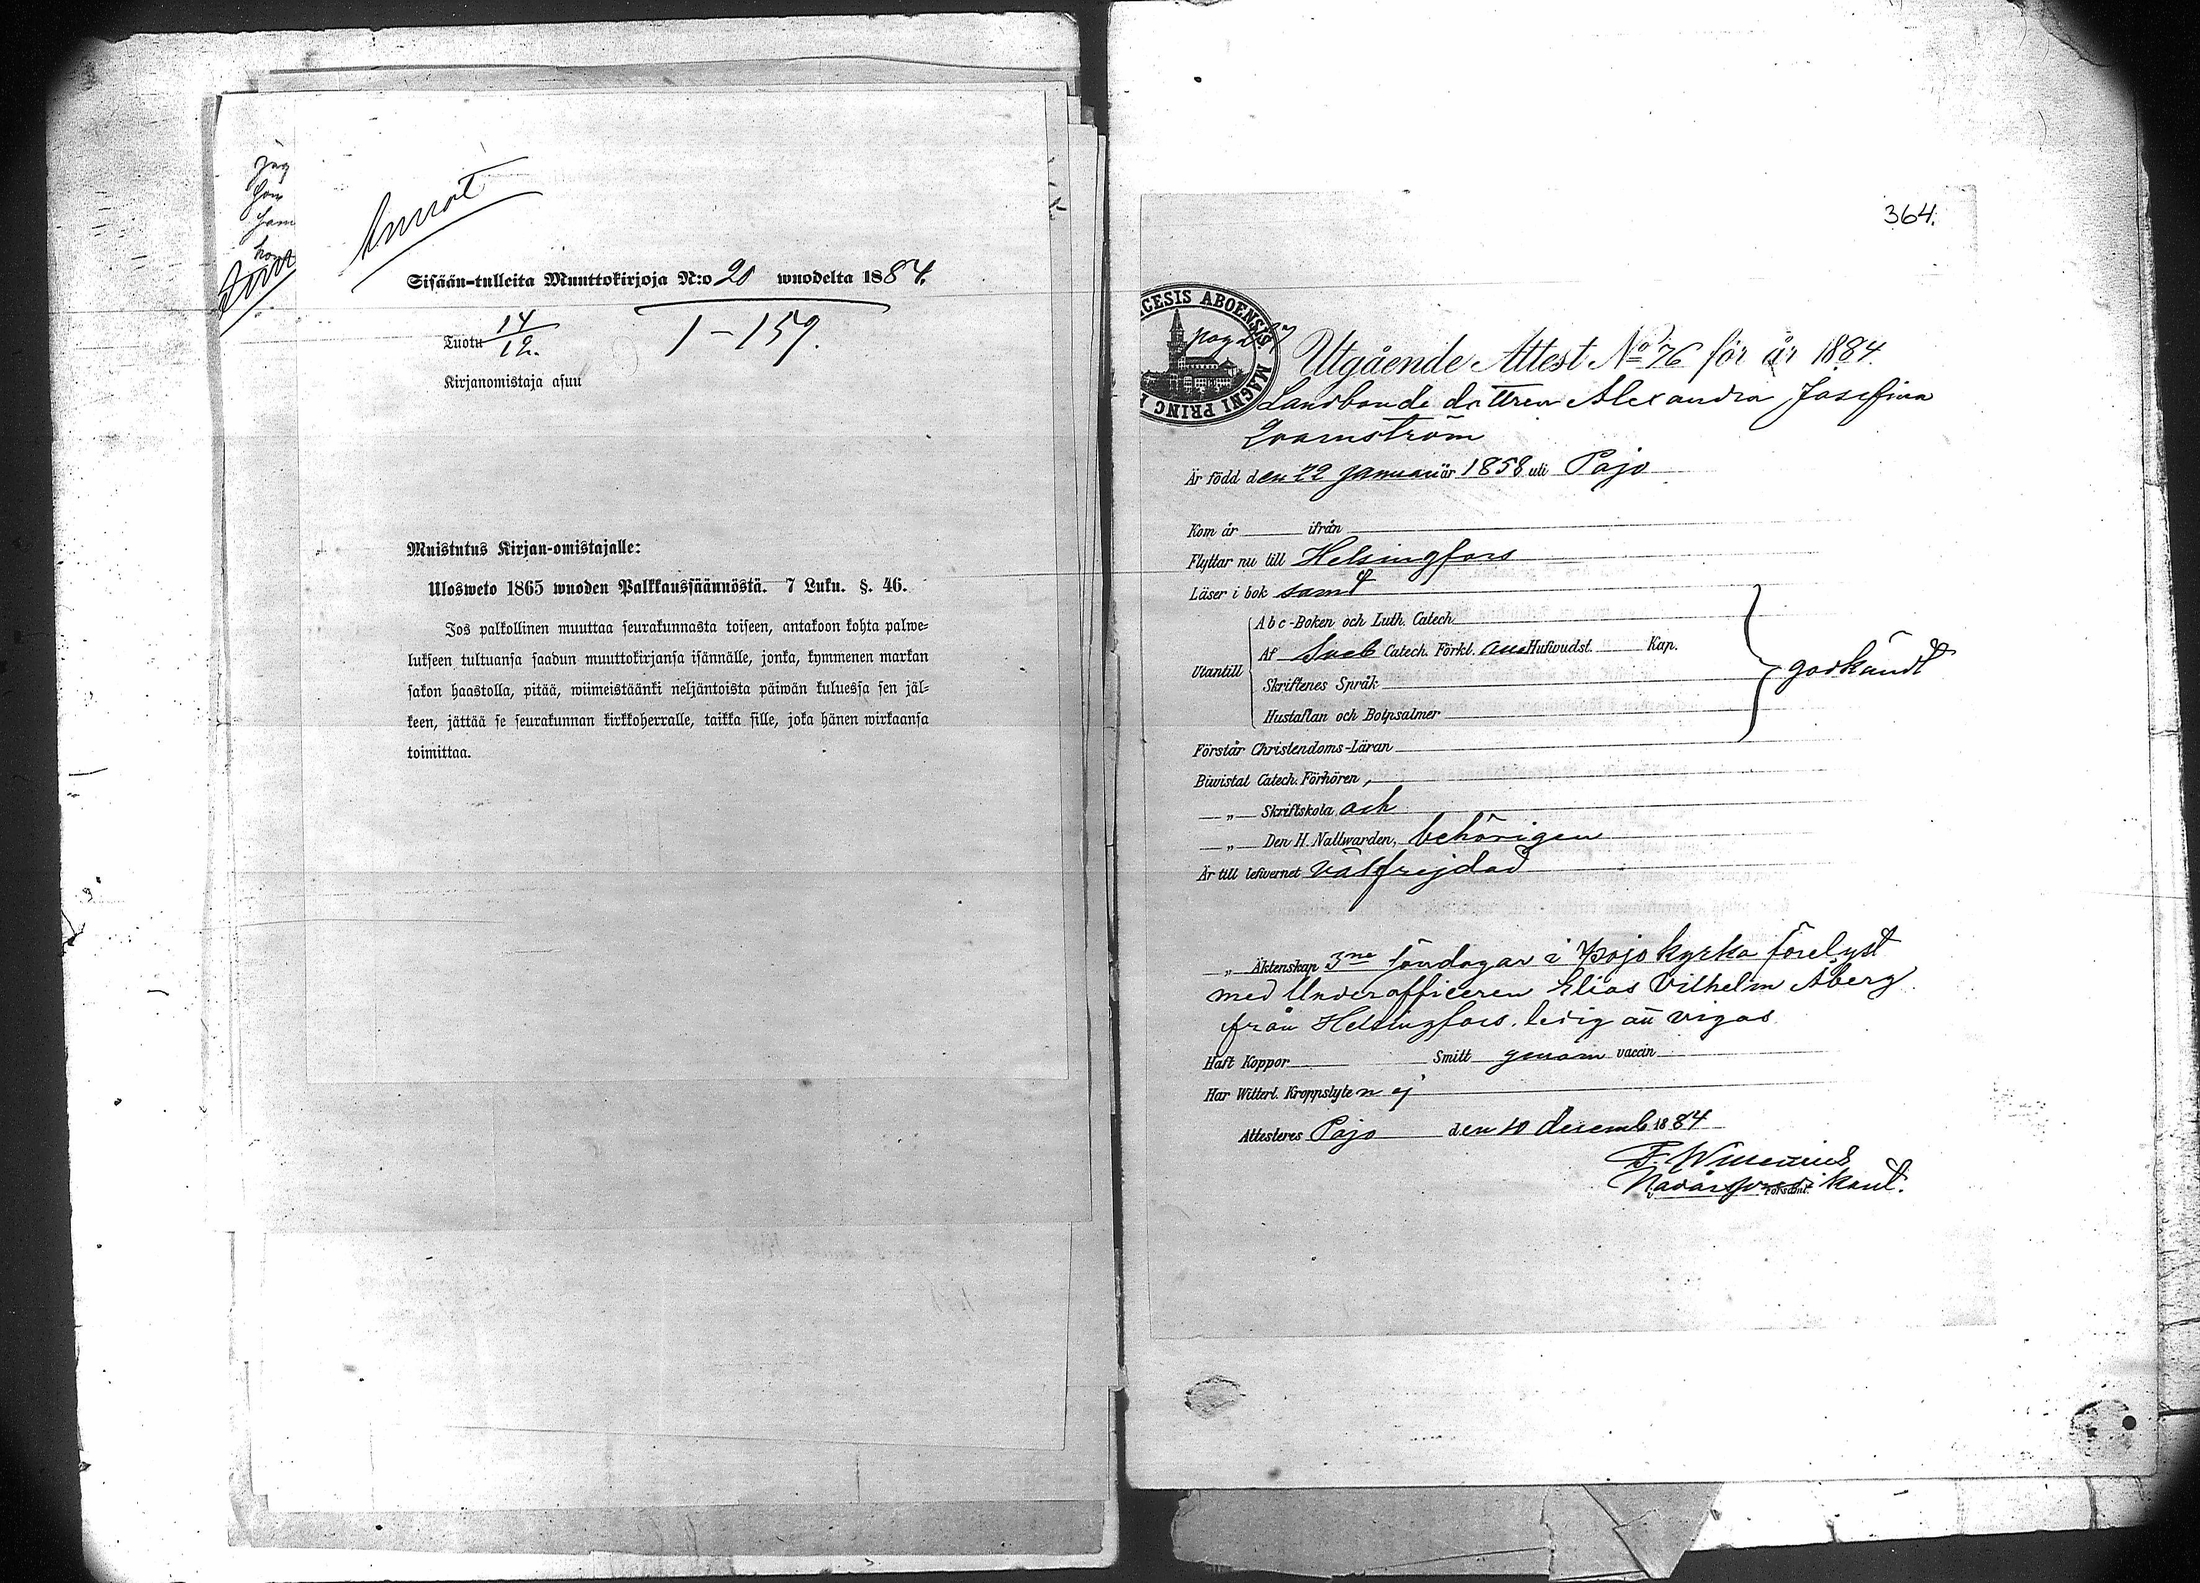 Annot
Sisään-tulleita Muuttokirjoja N:o 20 wuodelta 1884.
Tuotu 14/12.
1–159.
Kirjanomistaja asuu
Muistutus Kirjan-omistajalle:
Ulosweto 1865 wuoden Palkkaussäännöstä. 7 Luku. §. 46.
Jos palkollinen muuttaa seurakunnasta toiseen, antakoon kohta palwe-
lukseen tultuansa saadun muuttokirjansa isännälle, jonka, kymmenen markan
sakon haastolla, pitää, wiimeistäänki neljäntoista päiwän kuluessa sen jäl-
keen, jättää se seurakunnan kirkkoherralle, taikka sille, joka hänen wirkaansa
toimittaa.
364.
CESIS ABOENSIS MAGNI PRINC
Utgående Attest No 76 för år 1884.
Landbonde dottren Alexandra Josefina
Qvarnström
Är född den 22 Januari år 1858 uti Pojo
Kom år ifrån
Flyttar nu till Helsingfors
Läser i bok samt
Abc-Boken och Luth. Catech.
Utantill Af Sveb Catech. Förkl. Hufwudst. Kap.
Skriftenes Språk
Hustaflan och Botpsalmer
godkändt
Förstår Christendoms-Läran
Biwistat Catech. Förhören,
„ Skriftskola och
„ Den H. Nattwarden, behörigen
Är till lefwernet välfrejdad
„ Äktenskap 3ne söndagar i Pojo kyrka förelyst
med Underofficeren Elias Vilhelm Åberg
från Helsingfors. ledig att vigas
Haft Koppor Smitt genom vaccin
Har Witterl. Kroppslyte n ej
Attesteres Pojo den 10 decemb 1884
Nådårspredikant.